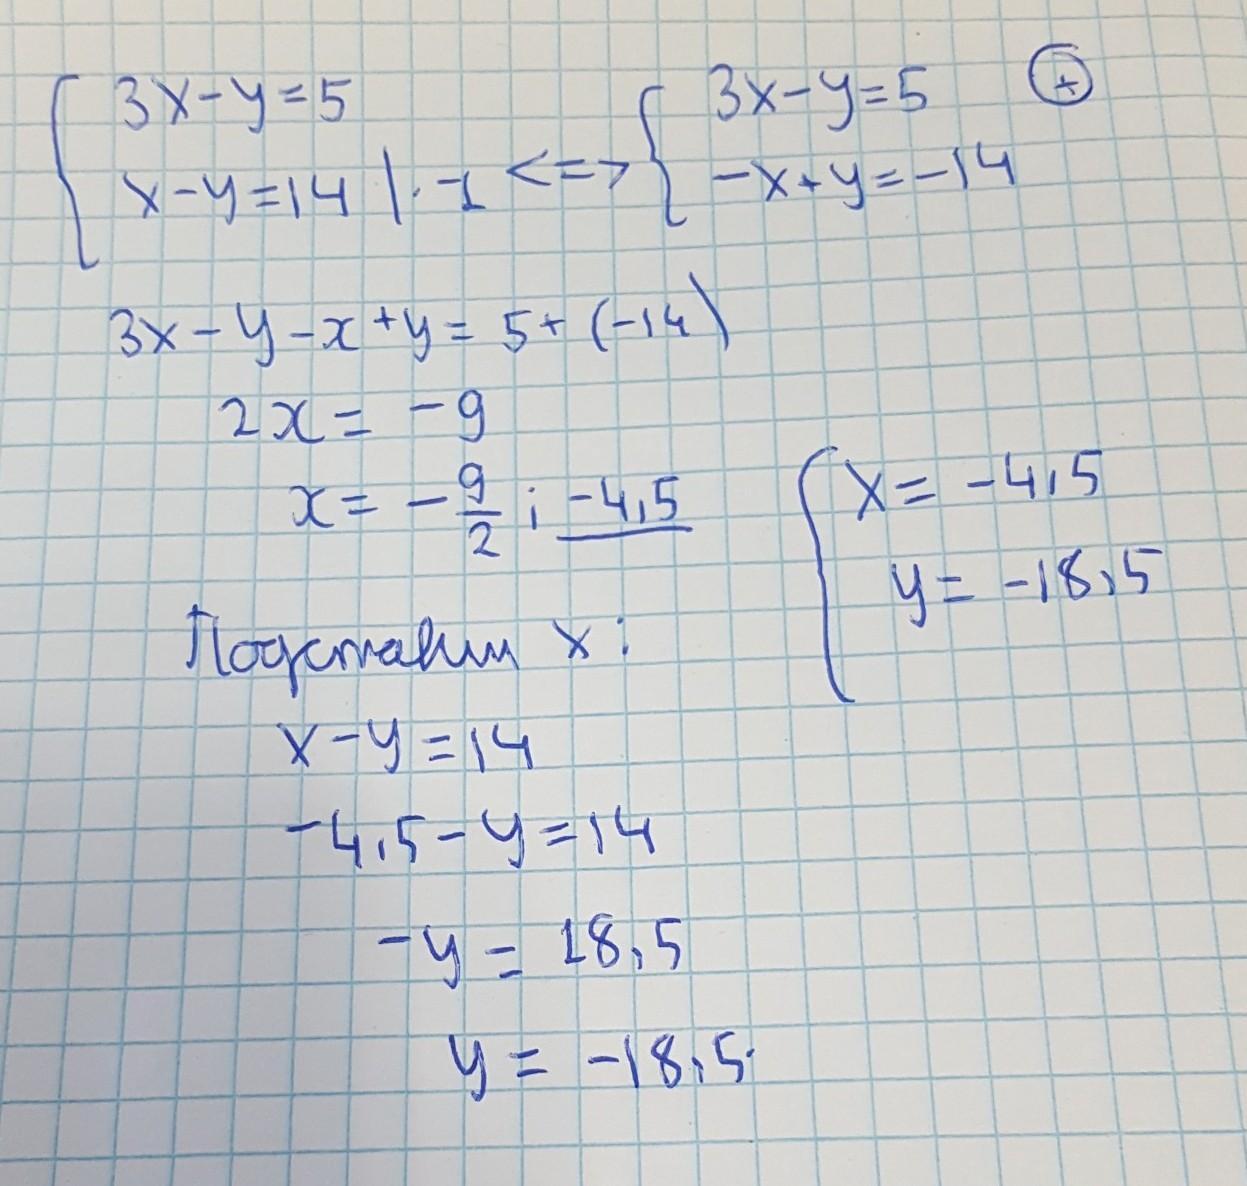 3x-y=5
x-y=14 |·-1 <=> 3x-y=5 +
-x+y=-14
3x-y-x+y=5+(-14)
2x=-9
x=-9/2; -4,5
x=-4,5
y=-18,5
Подставим x:
x-y=14
-4,5-y=14
-y=18,5
y=-18,5.